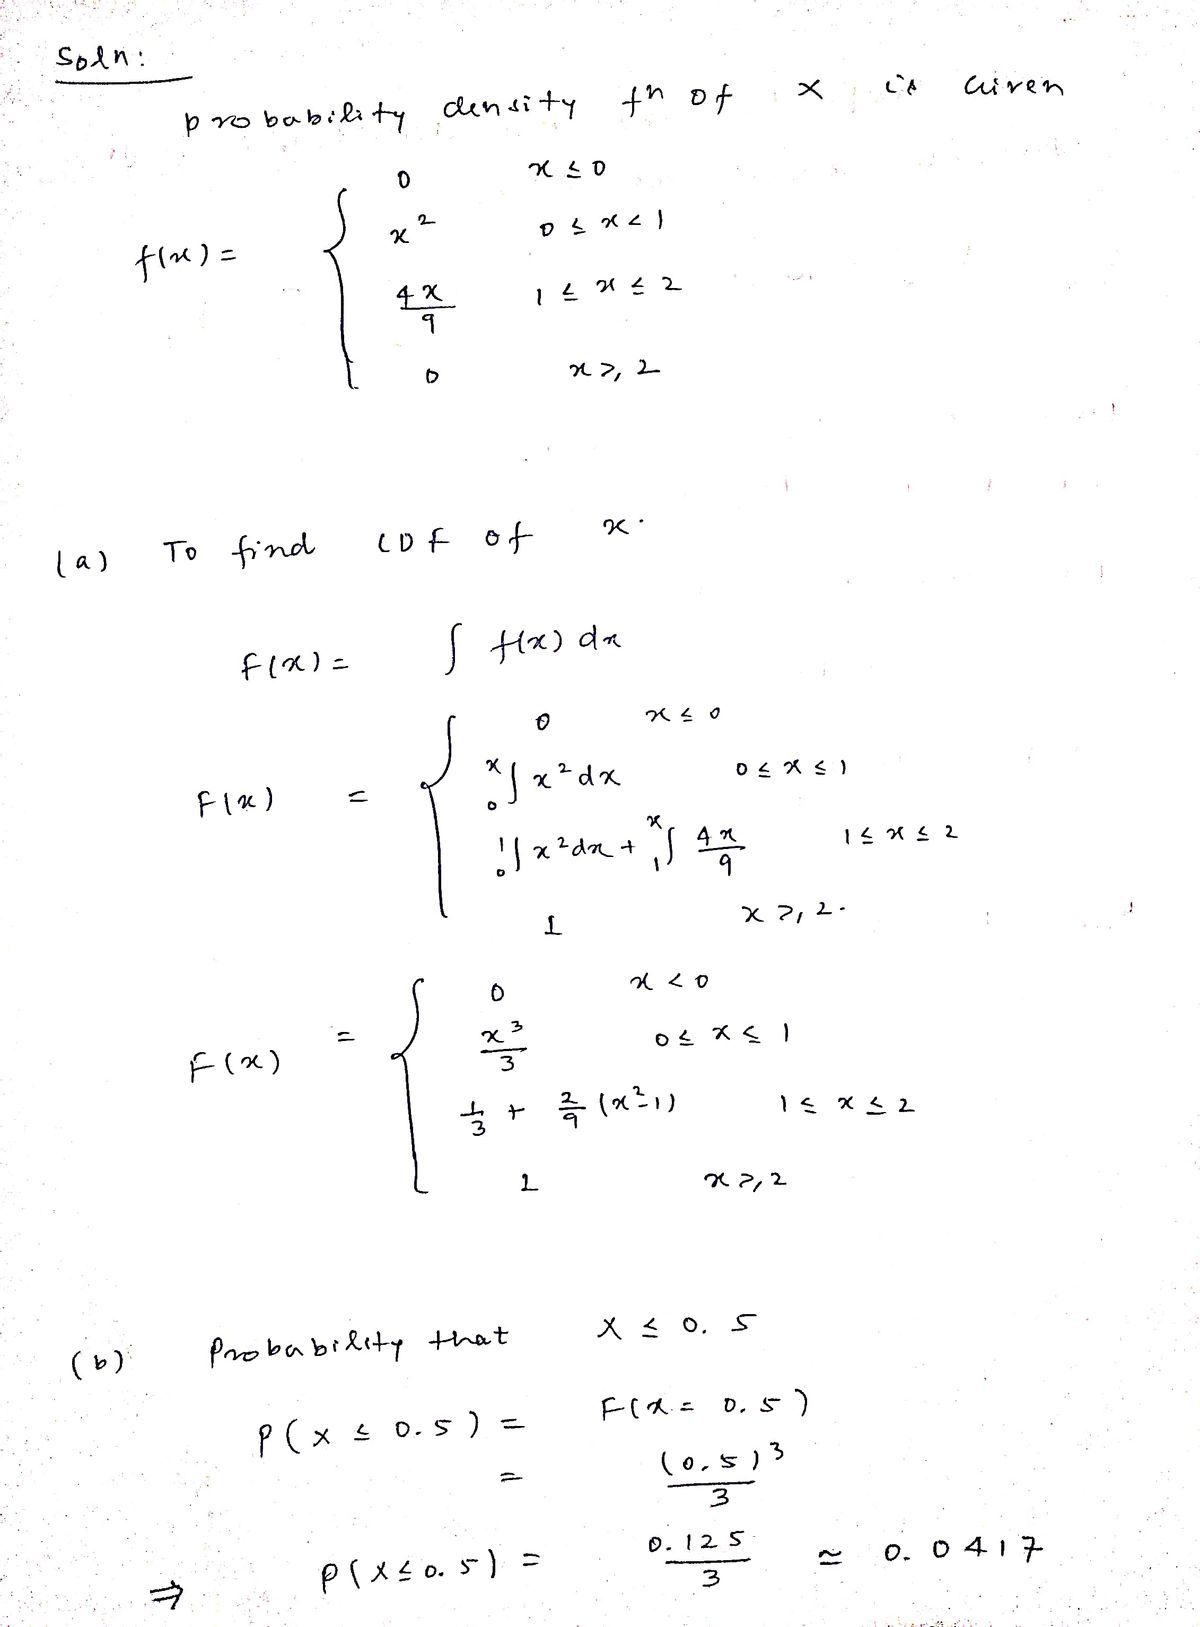 Soln:
probability density fn of X is Given
f(x) = { 0 x ≤ 0
x² 0 ≤ x < 1
4x/9 1 ≤ x ≤ 2
0 x ≥ 2
(a) To find CDF of x.
F(x) = ∫ f(x) dx
F(x) = { 0 x ≤ 0
₀∫ˣ x² dx 0 ≤ x ≤ 1
₀∫¹ x² dx + ₁∫ˣ 4x/9 1 ≤ x ≤ 2
1 x ≥ 2.
F(x) = { 0 x < 0
x³/3 0 ≤ x ≤ 1
1/3 + 2/9 (x²-1) 1 ≤ x ≤ 2
1 x ≥ 2
(b) Probability that X ≤ 0.5
P(X ≤ 0.5) = F(x = 0.5)
= (0.5)³/3
⇒ P(X ≤ 0.5) = 0.125/3 ≃ 0.0417